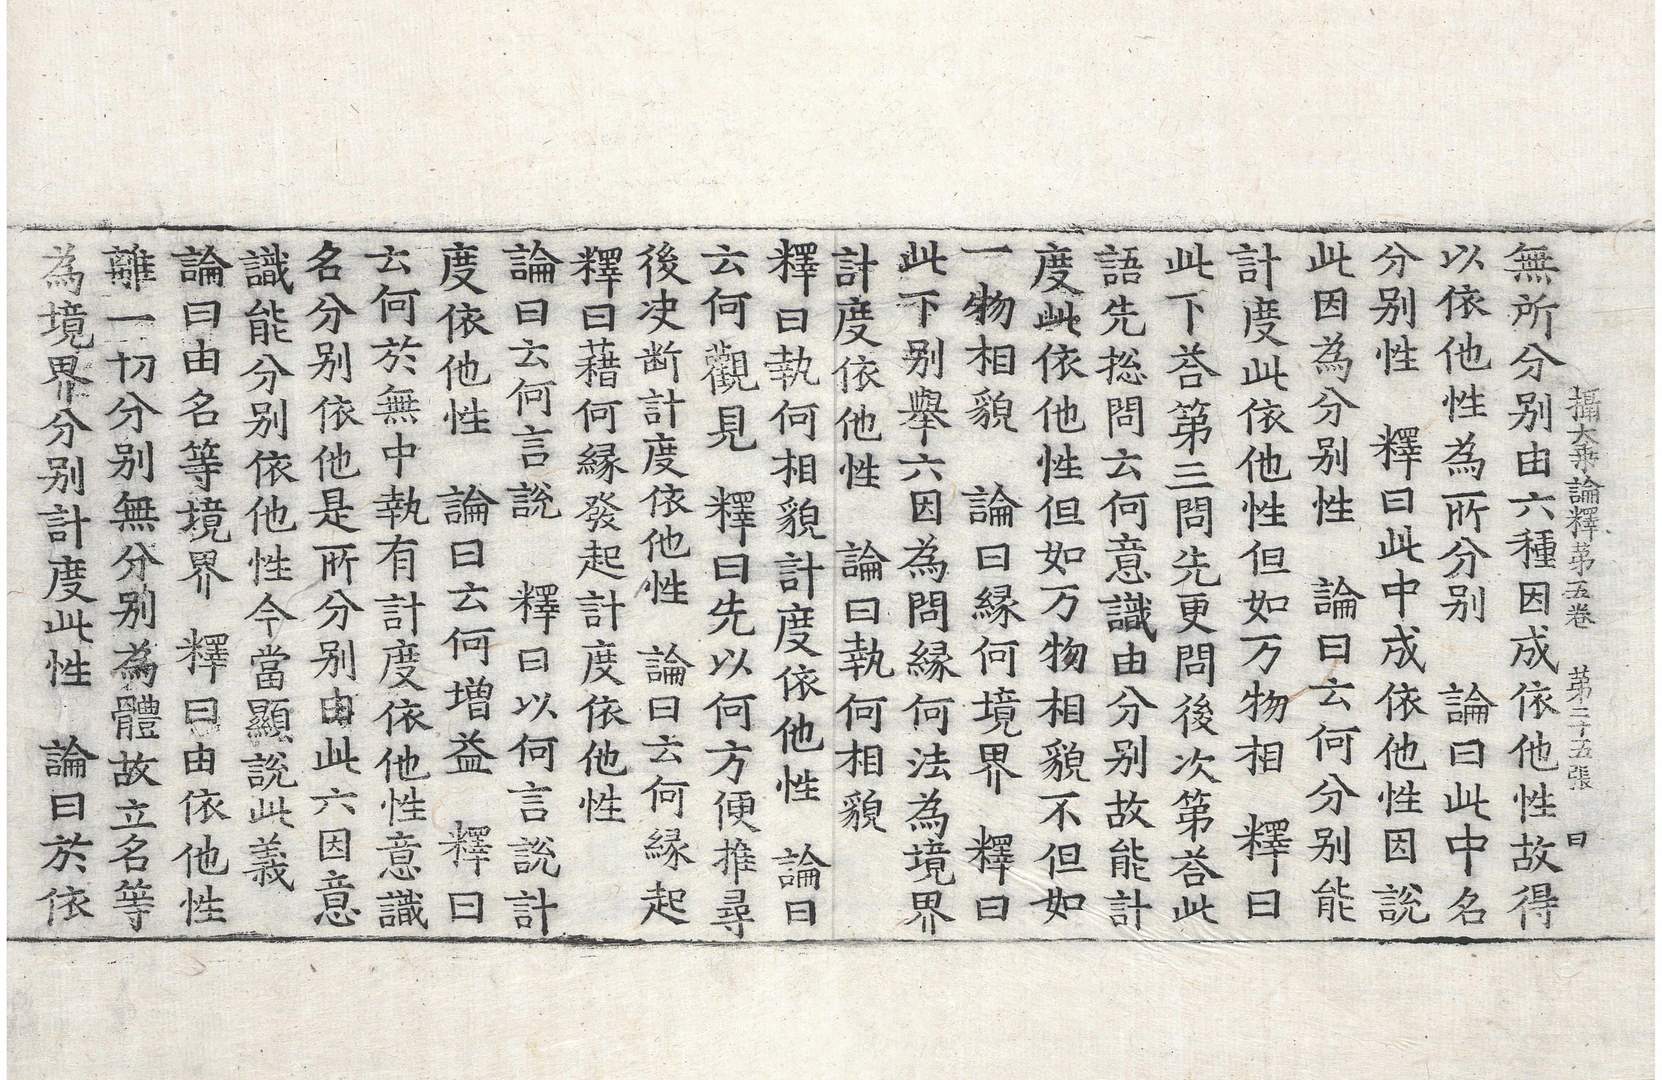 攝大乘論釋第五卷 第二十五張 曰
無所分别由六種因成依他性故得
以依他性為所分别 論曰此中名
分别性 釋曰此中成依他性因說
此因為分别性 論曰云何分别能
計度此依他性但如万物相 釋曰
此下荅第三問先更問後次第荅此
語先揔問云何意識由分别故能計
度此依他性但如万物相貌不但如
一物相貌 論曰緣何境界 釋曰
此下别舉六因為問緣何法為境界
計度依他性 論曰執何相貌
釋曰執何相貌計度依他性 論曰
云何觀見 釋曰先以何方便推尋
後决断計度依他性 論曰云何緣起
釋曰藉何緣發起計度依他性
論曰云何言說 釋曰以何言說計
度依他性 論曰云何增益 釋曰
云何於無中執有計度依他性意識
名分别依他是所分别由此六因意
識能分别依他性今當顯說此義
論曰由名等境界 釋曰由依他性
離一切分别無分别為體故立名等
為境界分别計度此性 論曰於依